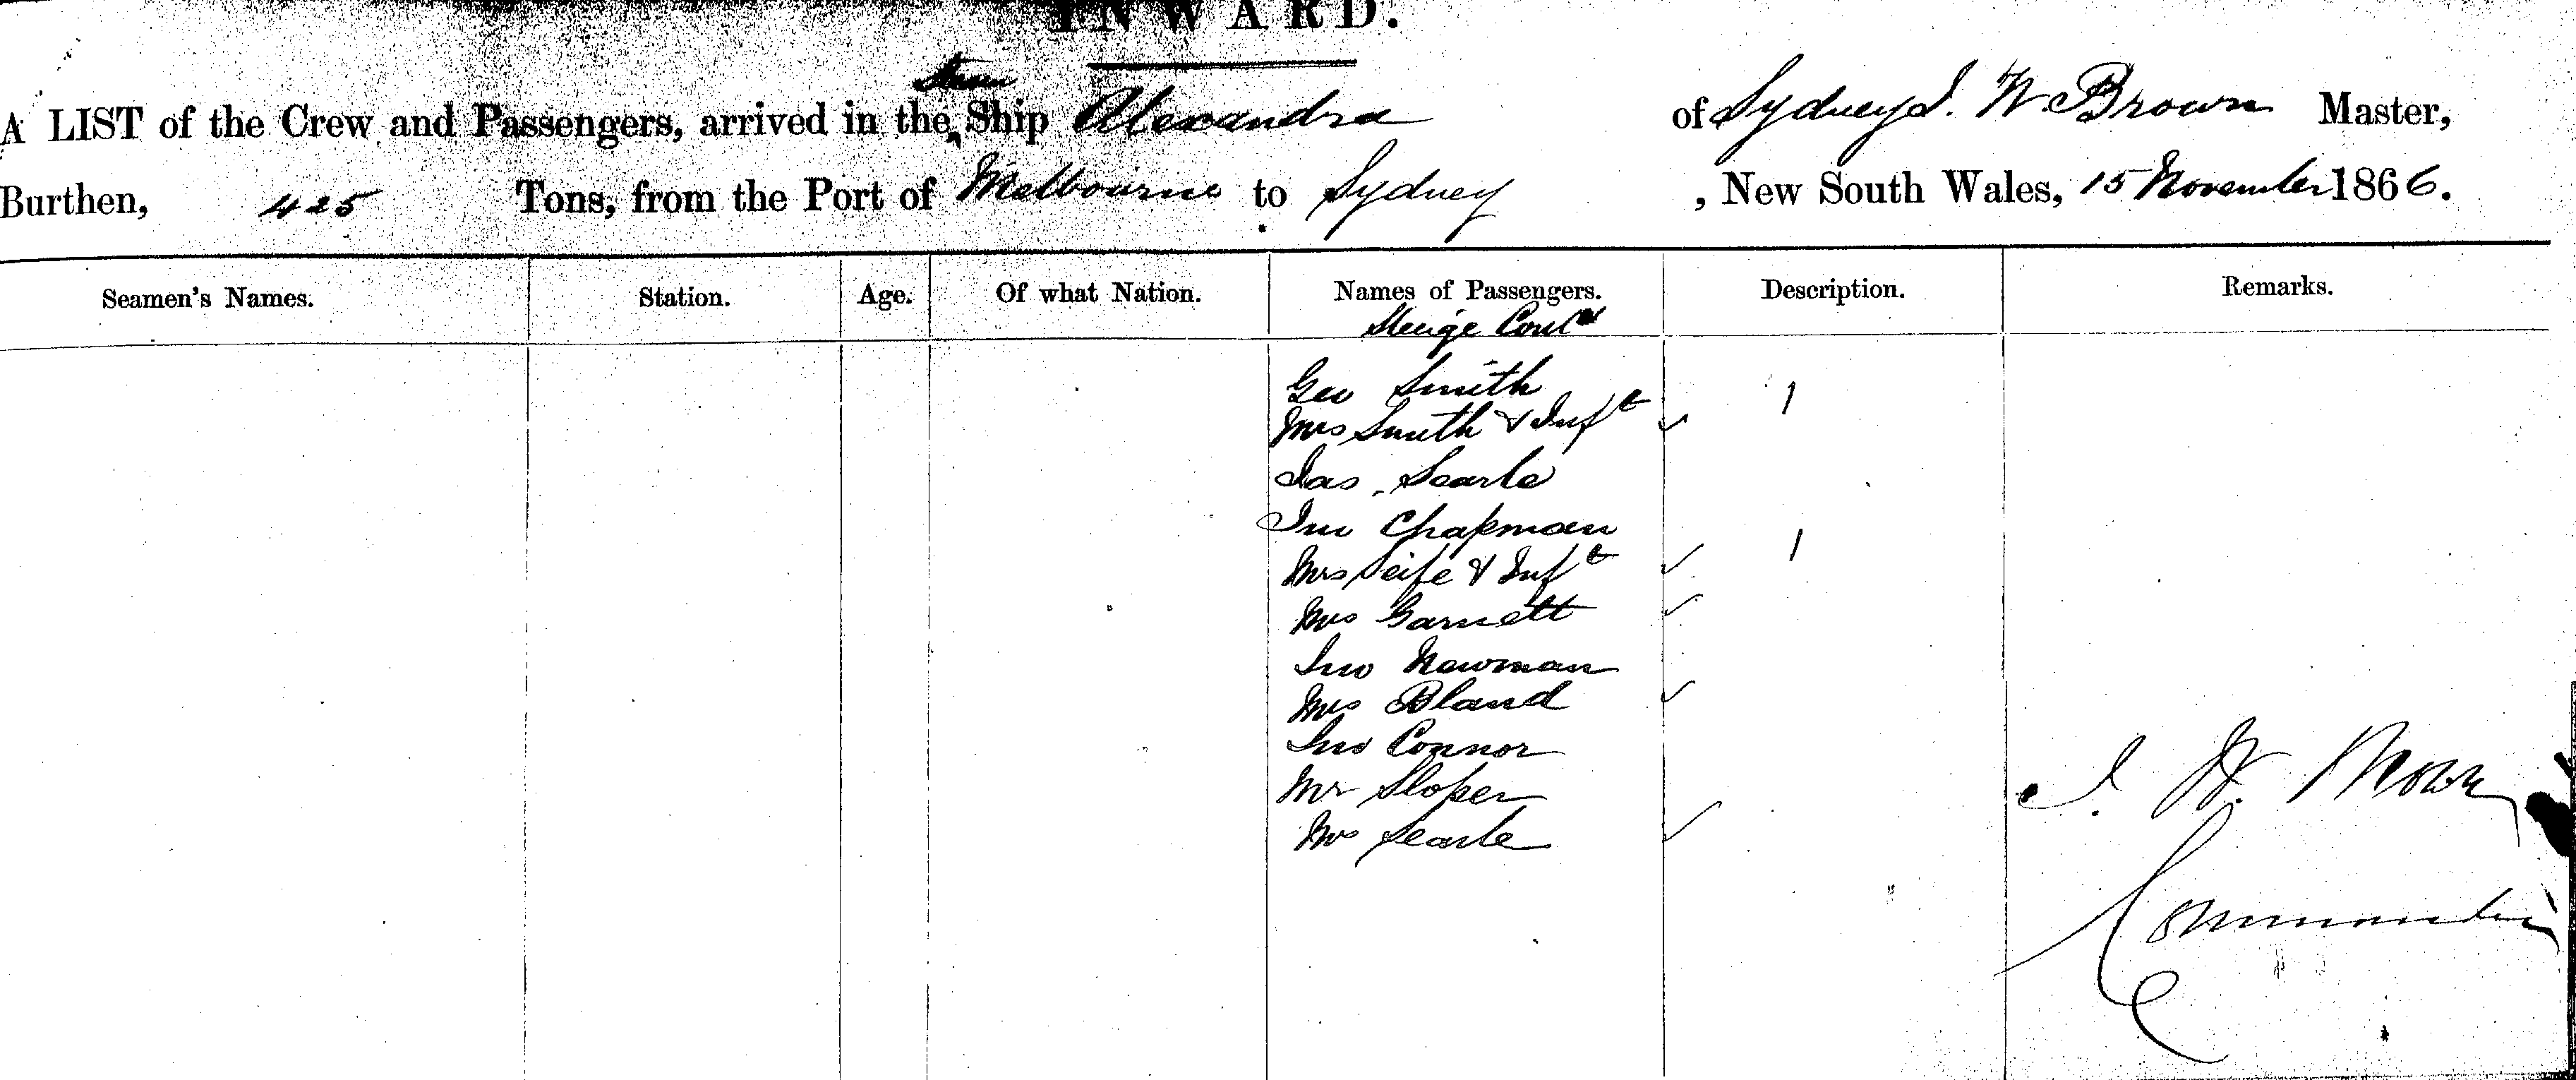 INWARD.
Steam
A LIST of the Crew and Passengers, arrived in the Ship Alexandra of Sydney J. W Brown Master,
Burthen, 425 Tons, from the Port of Melbourne to Sydney , New South Wales, 15 November 1866.
Seamen's Names. Station. Age. Of what Nation. Names of Passengers. Description. Remarks.
Geo Smith 1
Mrs Smith & Inft ✓
Jas. Searle
Jno Chapman
Mrs & Inft ✓ 1
Mrs Garnett ✓
Jno Newman
Mrs Bland ✓
Jno Connor
Mr Sloper
Mrs Searle ✓
J. W. Brown
Commander